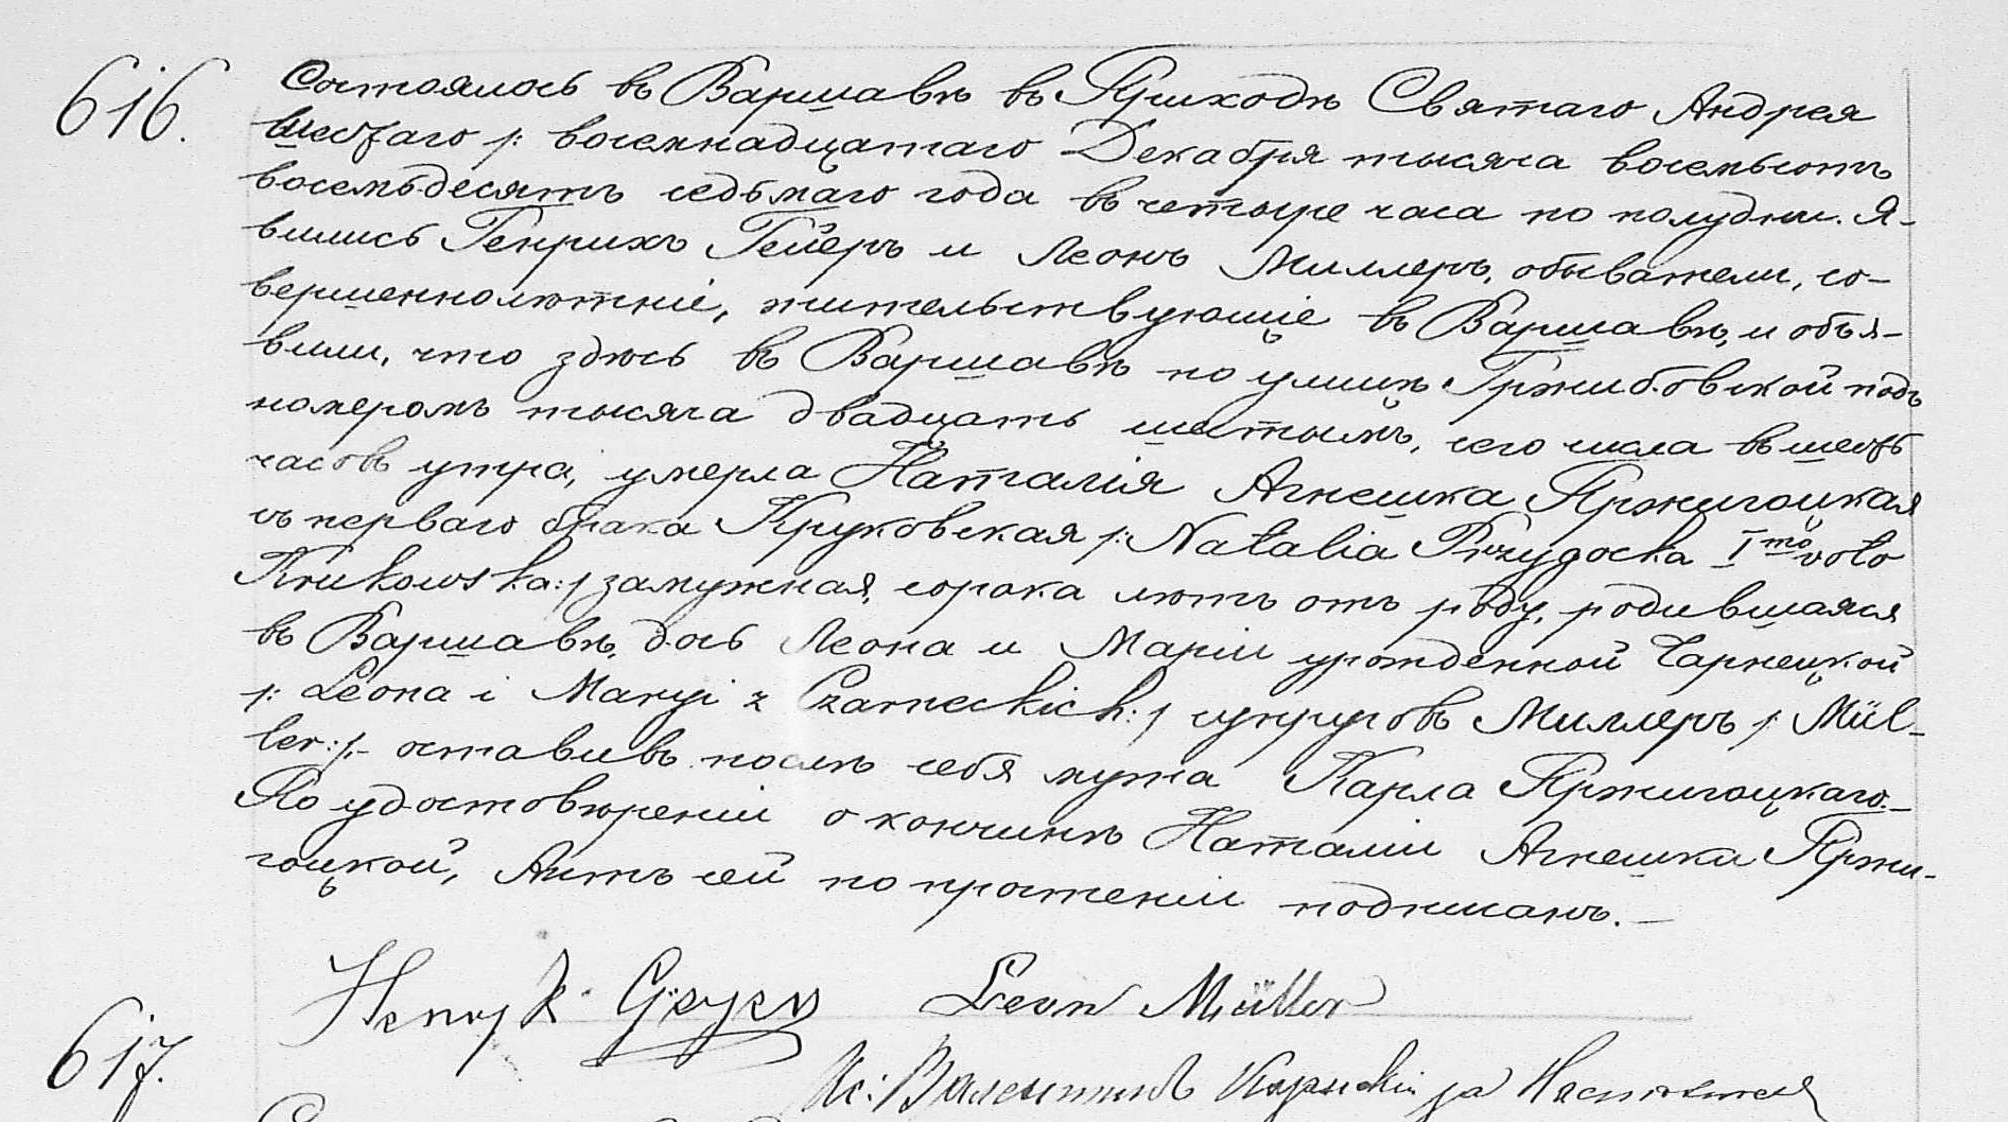 616.
Состоялось въ Варшавѣ въ Приходѣ Святаго Андрея
шестаго /: восемнадцатаго Декабря тысяча восемьсотъ
восемьдесятъ седьмаго года въ четыре часа по полудни. Я-
вились Генрихъ Гейеръ и Леонъ Миллеръ, обыватели, со-
вершеннолѣтніе, жительствующіе въ Варшавѣ, и объя-
вили, что здѣсь въ Варшавѣ по улицѣ Гржибовской подъ
номеромъ тысяча двадцать шестымъ, сего числа въ шесть
часовъ утра, умерла Наталія Агнешка Пржигоцкая
съ перваго брака Круковская /: Natalia Przygocka Imo voto
Krukowska :/ замужная, сорока лѣтъ отъ роду, родившаяся
въ Варшавѣ, дочь Леона и Маріи урожденной Чарнецкой
/: Leona i Maryi z Czarneckich :/ супруговъ Миллеръ /: Mül-
ler :/- оставивъ послѣ себя мужа Карла Пржигоцкаго.-
По удостовѣреніи о кончинѣ Наталіи Агнешки Пржи-
гоцкой, Актъ сей по прочтеніи подписанъ.-
Henryk Geyer Leon Müller
Кс: Валентинъ за Настоятеля
617.